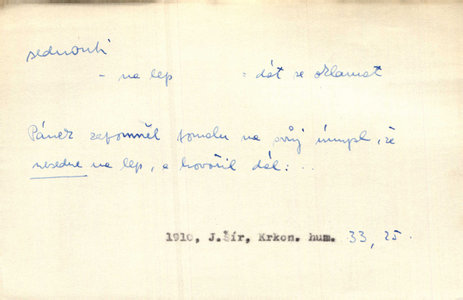 sednouti
- na lep = dát se oklamat
Páner zapomněl pomalu na svůj úmysl, že
nesedne na lep, a hovořil dál: ..
1910, J.Šír, Krkon. hum. 33, 25.